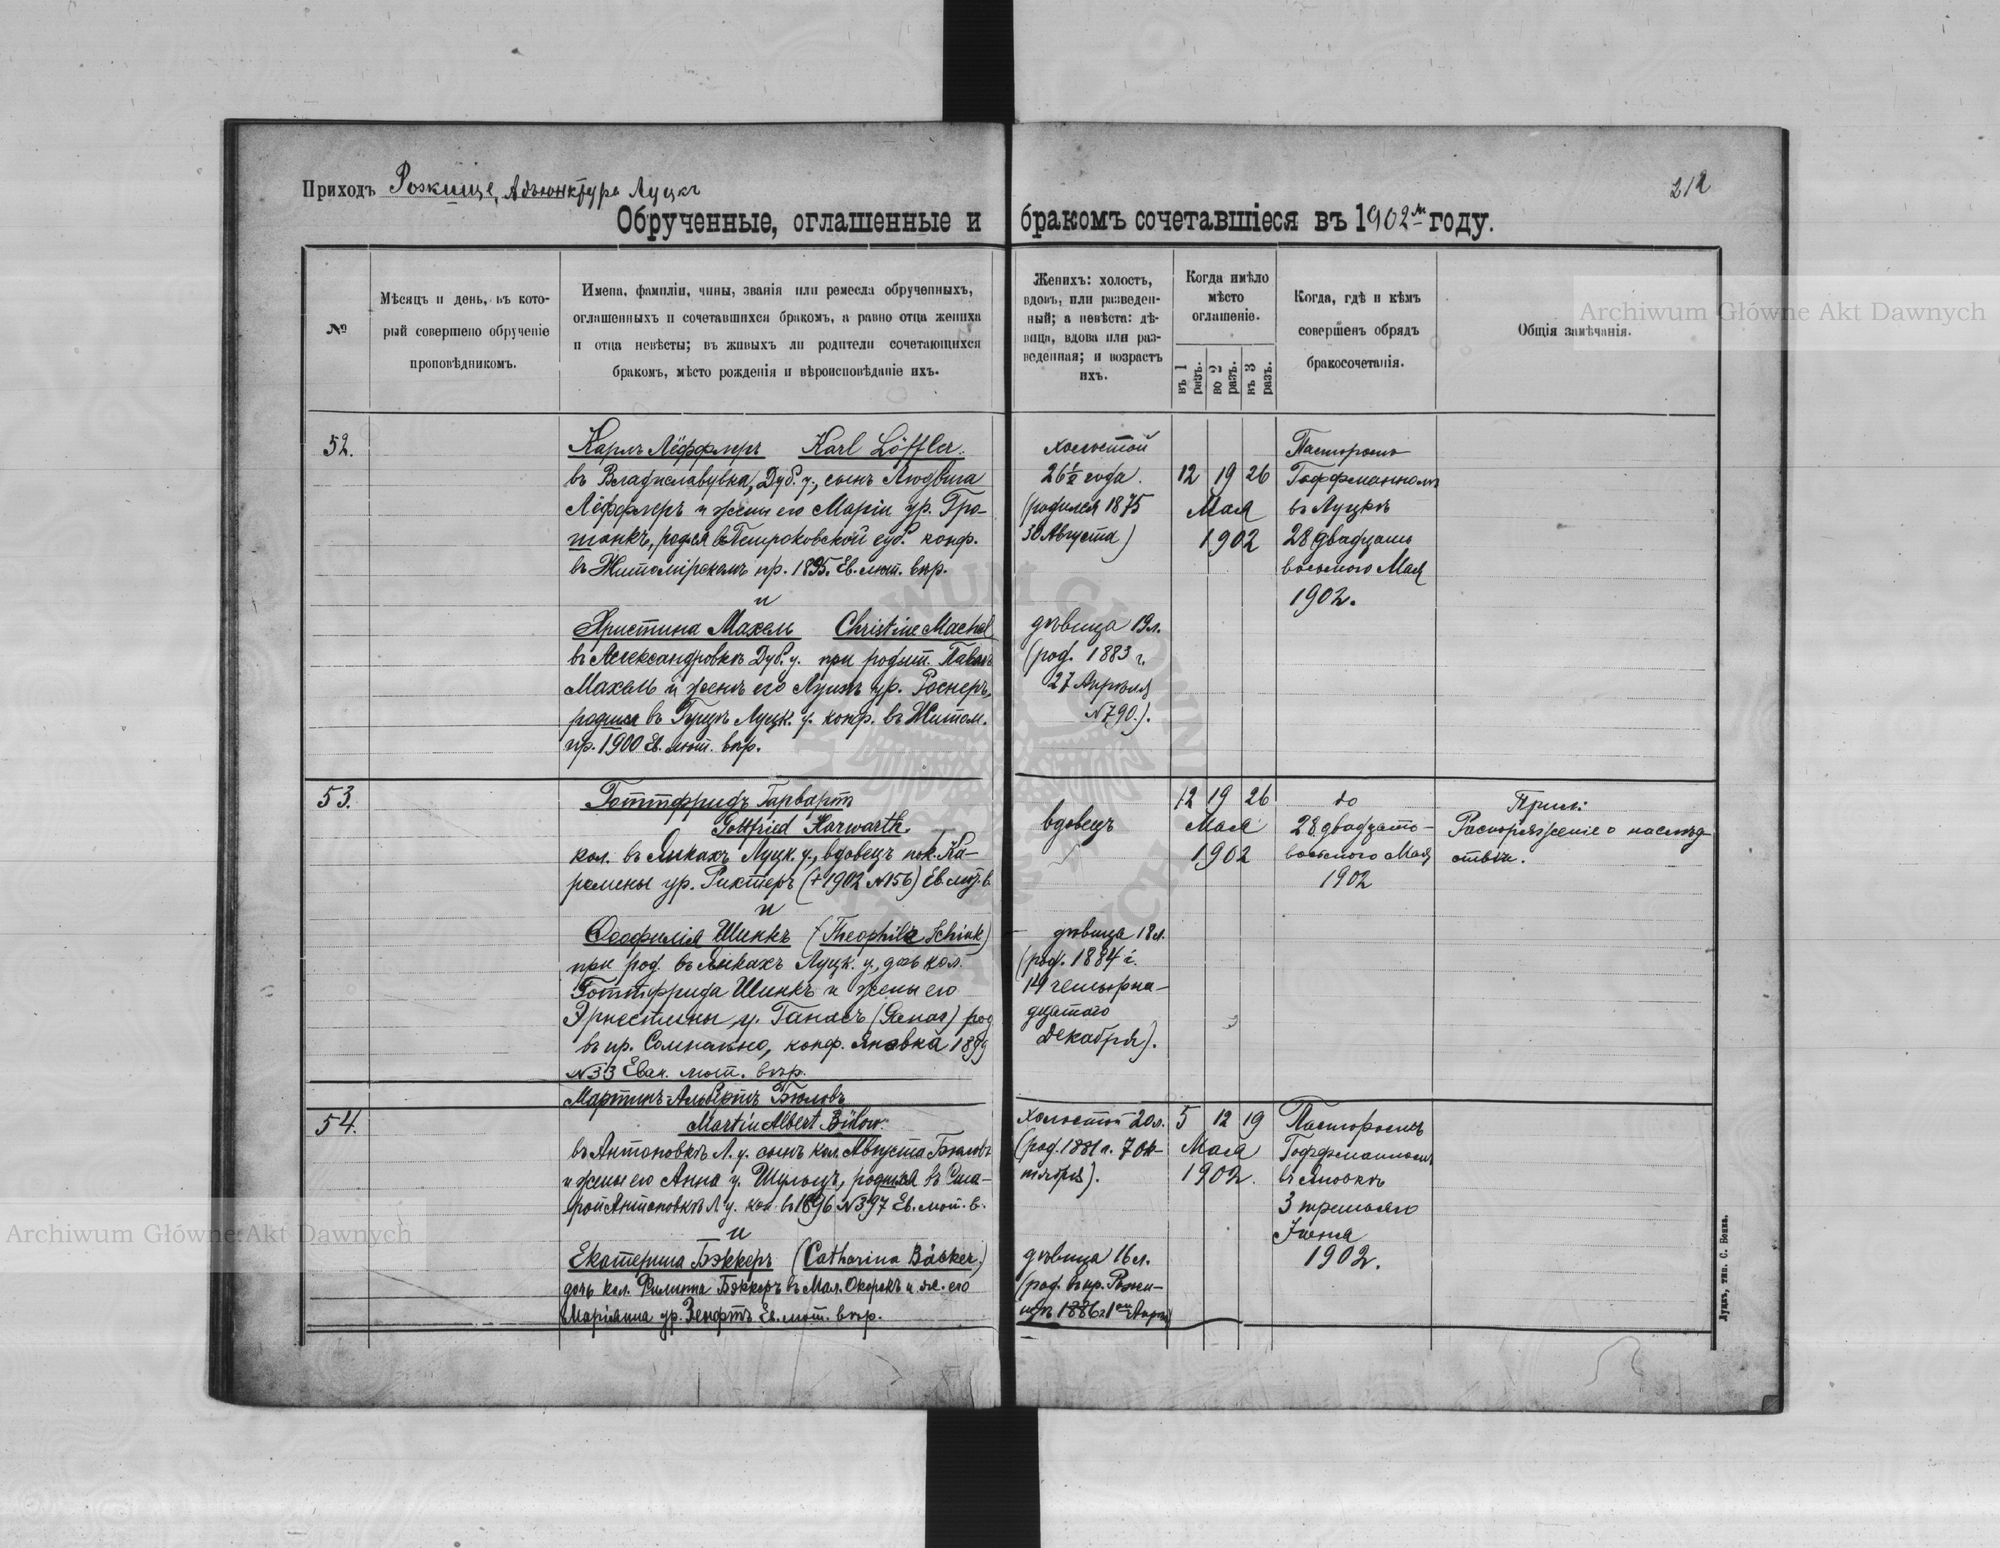 Приходъ Рожище, Адъюнктура Луцкъ
212
Обрученные, оглашенные и бракомъ сочетавшіеся въ 1902 м году.
№
Мѣсяцъ и день, въ кото-
рый совершено обрученіе
проповѣдникомъ.
Имена, фамиліи, чины, званія или ремесла обрученныхъ,
оглашенныхъ и сочетавшихся бракомъ, а равно отца жениха
и отца невѣсты; въ живыхъ ли родители сочетающихся
бракомъ, мѣсто рожденія и вѣроисповѣданіе ихъ.
Женихъ: холостъ,
вдовъ, или разведен-
ный; а невѣста: дѣ-
вица, вдова или раз-
веденная; и возрастъ
ихъ.
Когда имѣло
мѣсто
оглашеніе.
въ 1 разъ.
во 2 разъ.
въ 3 разъ.
Когда, гдѣ и кѣмъ
совершенъ обрядъ
бракосочетанія.
Общія замѣчанія.
52.
Карлъ Лёффлеръ Karl Löffler.
въ Владиславувка, Дуб. у., сынъ Людвига
Лёффлеръ и жены его Маріи ур. Гро-
шанкъ, родился въ Петроковской губ. конф.
въ Житомірскомъ пр. 1895. Ев. лют. вѣр.
и
Христина Махель Christine Machel
въ Александровкѣ Дуб. у. при родит. Павлѣ
Махель и женѣ его Луизѣ ур. Роснеръ,
родился въ Луцк. у. конф. въ Житом.
пр. 1900 Ев. лют. вѣр.
холостой
26½ года.
(родился 1875
30 Августа)
дѣвица 19 л.
(род. 1883 г.
27 Апрѣля
№790.).
12 19 26
Мая
1902
Пасторомъ
Гоффманномъ
въ Луцкѣ
28 двадцать
восьмого Мая
1902.
53.
Готтфридъ Гарвартъ
Gottfried Harwarth.
кол. въ Луцк. у., вдовецъ пок. Ка-
ролины ур. Рихтеръ (+1902 №156) Ев. лют. в.
и
Ѳеофилія Шинкъ (Theophile Schink)
при род. въ Луцк. у., дочь кол.
Готтфрида Шинкъ и жены его
Эрнестины у. Ганасъ (Ganas) род
въ пр. конф. Яновка 1899
№33 Еван. лют. вѣр.
вдовецъ
дѣвица 18 л.
(род. 1884 г.
14 четырна-
дцатого
Декабря).
12 19 26
Мая
1902
do
28 двадцать-
восьмого Мая
1902
Прил:
Распоряженіе о наслѣд-
ствѣ.
54.
Мартинъ-Альбертъ Бюловъ
Martin Albert Bülow.
въ Антоновкѣ Л. у. сынъ кол. Августа Бюловъ
и жены его Анна у. Шульцъ, родился въ Ста-
рой Антоновкѣ Л у. кон. въ 1896 №397 Ев. лют. в.
и
Екатерина Бэккеръ (Catharina Bäcker)
дочь кол. Филиппа Бэккеръ въ Мал. и ж. его
Маріянна ур. Зенфтъ Ев. лют. вѣр.
холостой 20 л.
(род. 1881 г. 7 Ок-
тября).
дѣвица 16 л.
(род. въ пр. Рожи-
щѣ 1886 г. 1 Апрѣл)
5 12 19
Мая
1902.
Пасторомъ
Гоффманномъ
въ
3 третьяго
Іюня
1902.
Луцкъ, тип. С. Бонка.
Archiwum Główne Akt Dawnych
Archiwum Główne Akt Dawnych